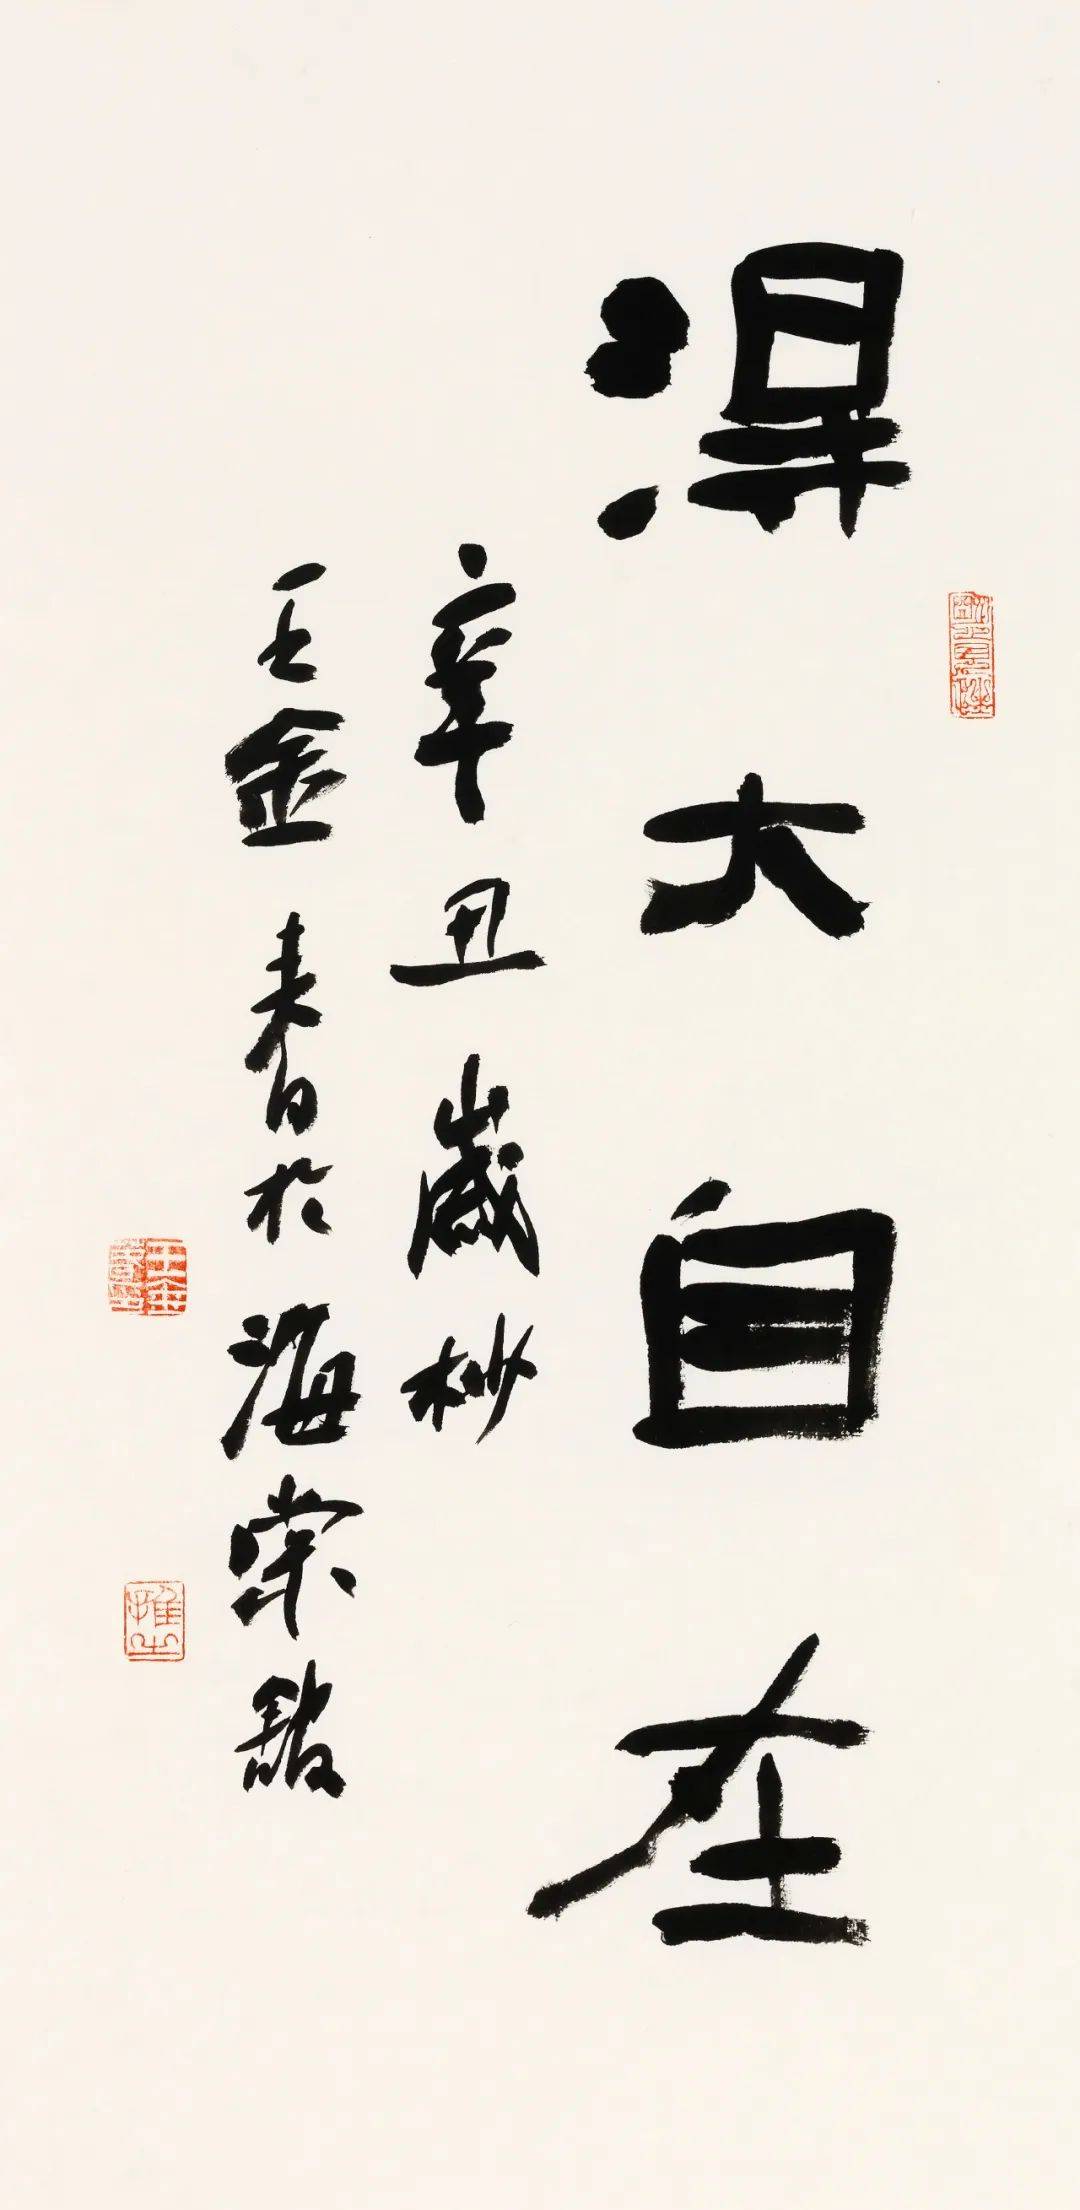 得大自在
辛丑歲杪
王金春於海棠舘